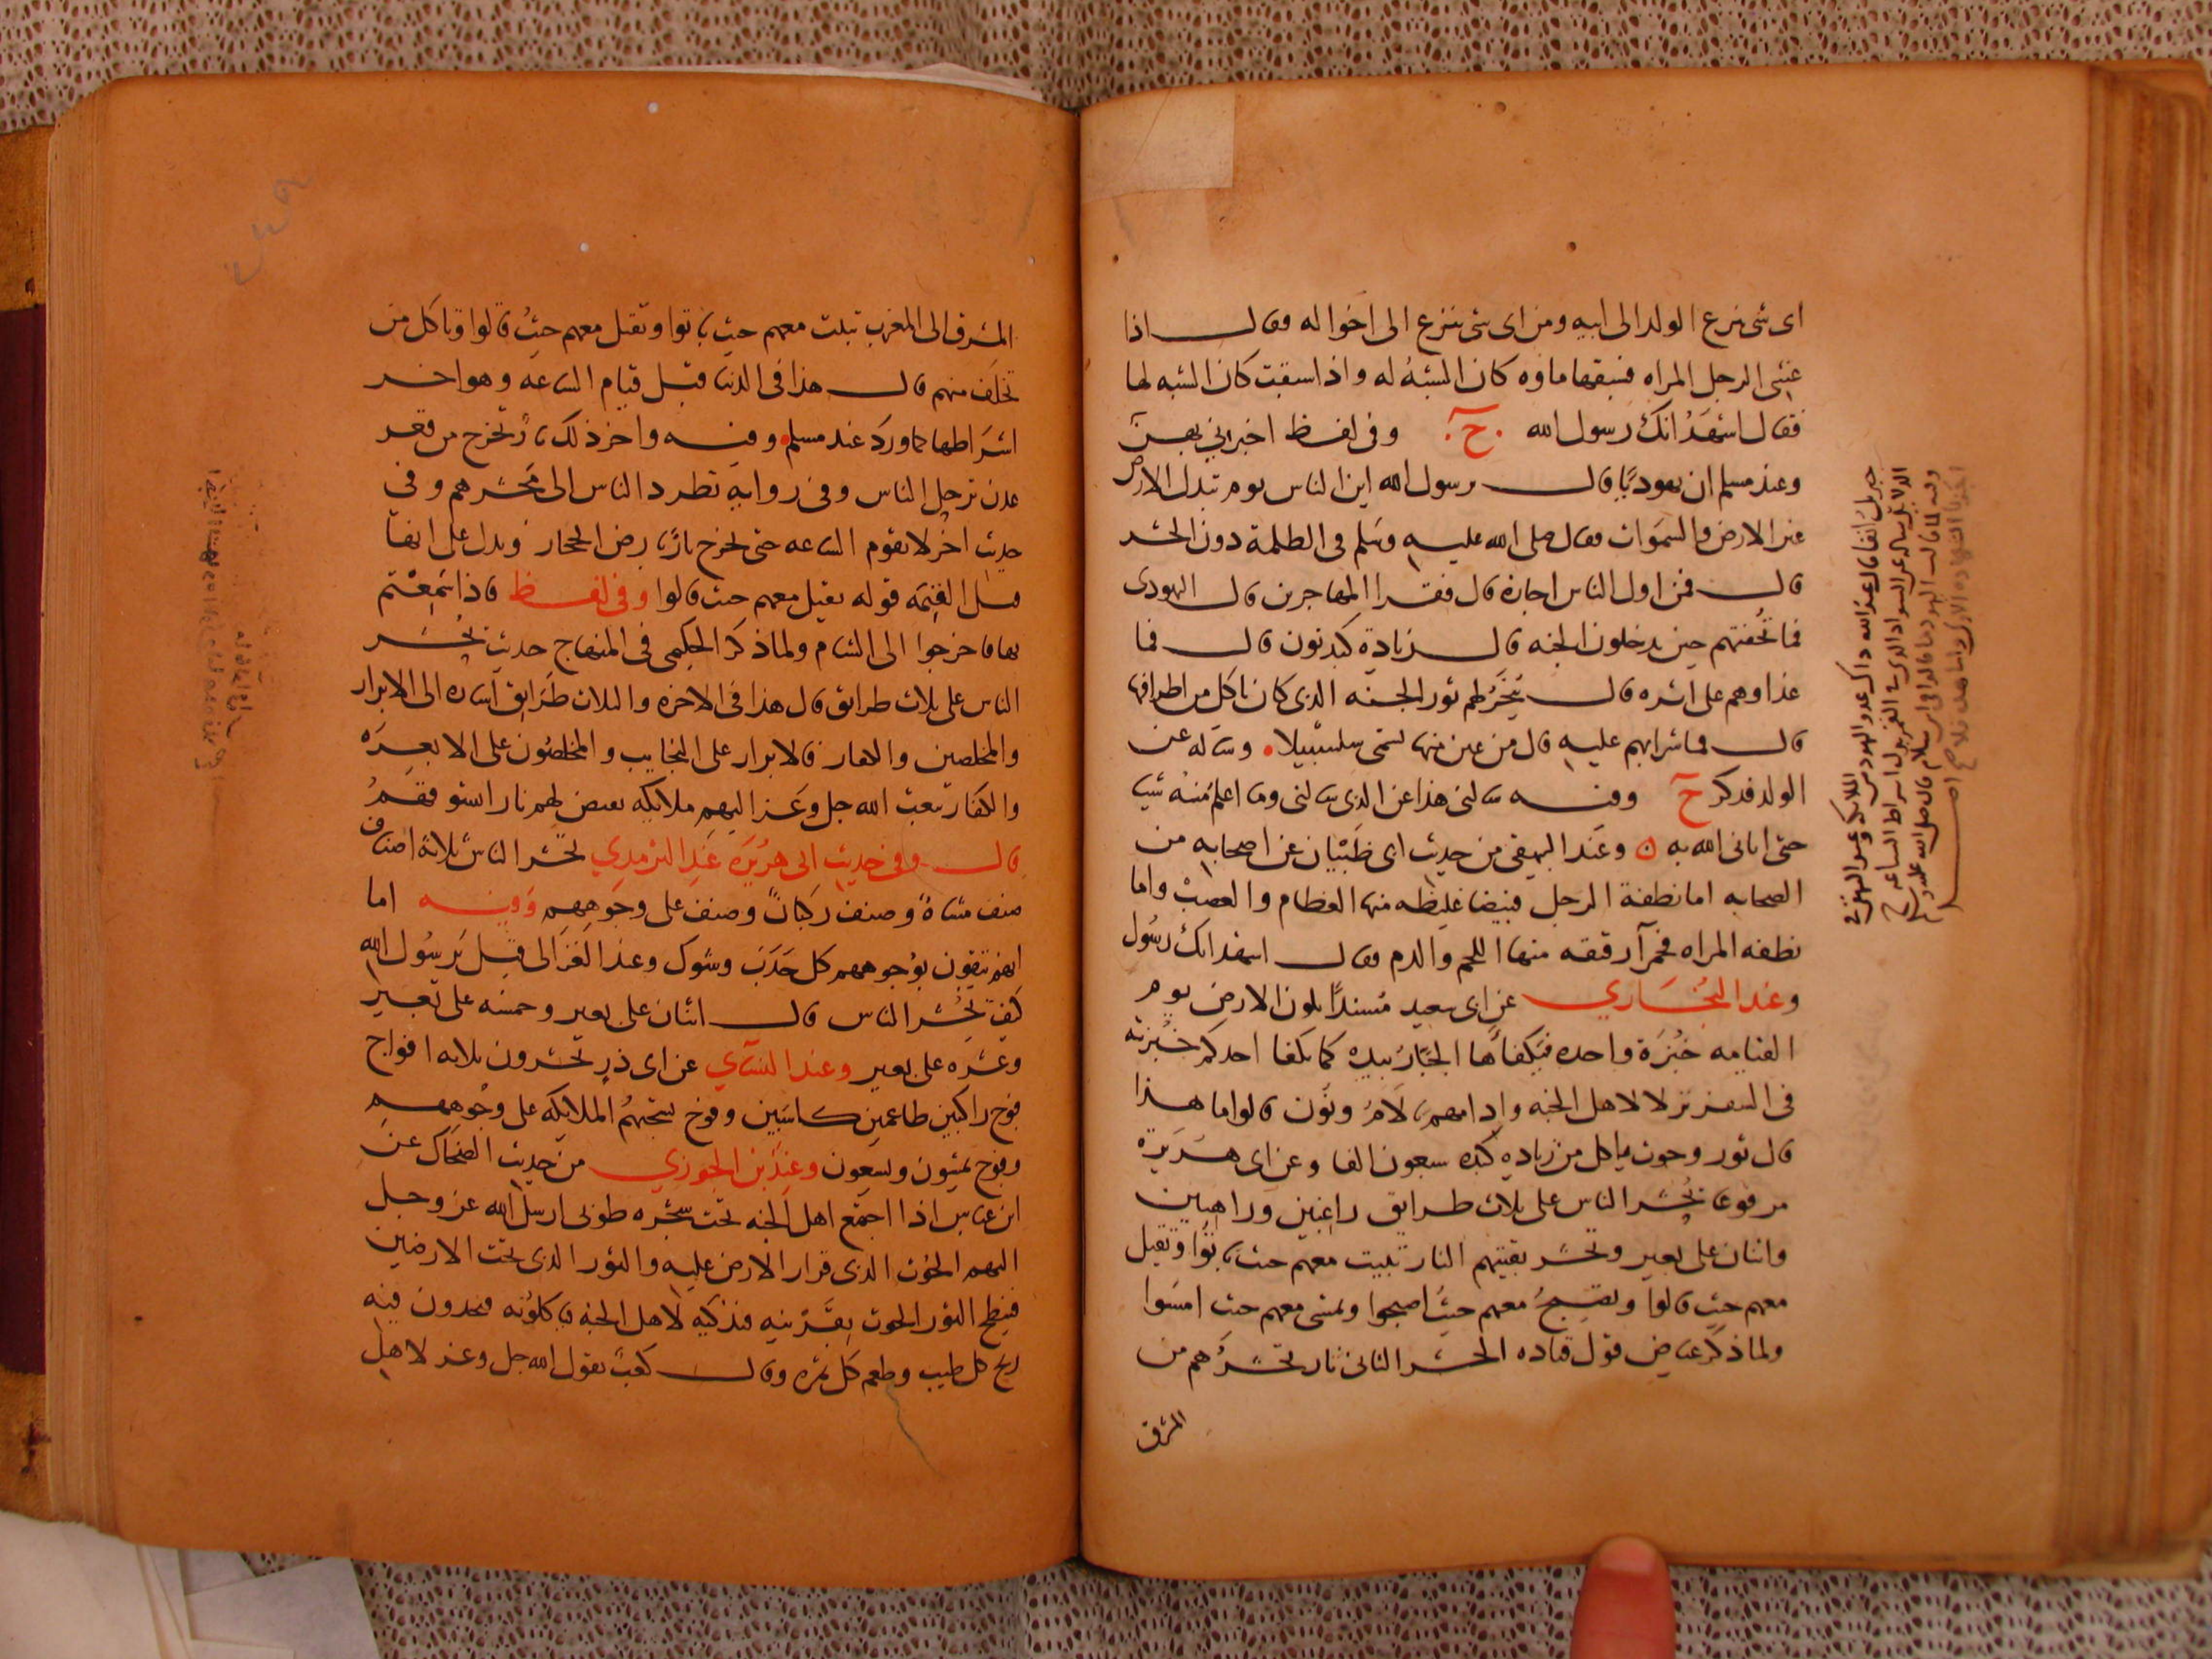 اى شى ينزع الولد الى ابيه ومن اى شى ينزع الى اخواله فقال اذا
غشى الرجل المراه فسبقها ماوه كان الشبه له واذا سبقت كان الشبه لها
فقال اشهد انك رسول الله ح وفى لفظ اخبرنى بهن
وعند مسلم ان يهوديا قال يرسول الله اين الناس يوم تبدل الارض
غير الارض والسموات فقال صلى الله عليه وسلم فى الظلمة دون الحشر
قال فمن اول الناس اجازة قال فقرا المهاجرين قال اليهودى
فما تحفتهم حين يدخلون الجنه قال زيادة كبد نون قال فما
غذاوهم على اثره قال ينحر لهم ثور الجنه الذى كان ياكل من اطرافها
قال فما شرابهم عليه قال من عين فيها تسمى سلسبيلا وساله عن
الولد فذكر ح وفيه سالنى هذا عن الذى سالنى وما اعلم منه شيا
حتى اتانى الله به ن وعند البيهقى من حديث ابى ظبيان عن اصحابه من
الصحابه اما نطفة الرجل فبيضا غليظه منها العظام والعصب واما
نطفه المراه فحمرآ رقيقه منها اللحم والدم فقال اشهد انك رسول
وعند البخاري عن ابى سعيد مسندا تكون الارض يوم
القيامه خبزة واحده فيكفأها الجبار بيده كما يكفا احدكم خبزته
فى السفر نزلا لاهل الجنه وادامهم بالام ونون قالوا ما هذا
قال ثور وحوت ياكل من زياده كبده سبعون الفا وعن ابى هريرة
مرفوعا يحشر الناس على ثلاث طرايق راغبين وراهبين
واثنان على بعير وتحشر بقيتهم النار تبيت معهم حيث باتوا وتقيل
معهم حيث قالوا وتصبح معهم حيث اصبحوا وتمسى معهم حيث امسوا
ولما ذكر عياض قول قتاده الحشر الثانى نار تحشرهم من
المشرق
المشرق الى المغرب تبيت معهم حيث باتوا وتقيل معهم حيث قالوا وتاكل من
تخلف منهم قال هذا فى الدنيا قبل قيام الساعه وهو اخر
اشراطها كما ورد عند مسلم وفيه واخر ذلك نار تخرج من قعر
عدن ترحل الناس وفى روايه تطرد الناس الى محشرهم وفى
حديث اخر لا تقوم الساعه حتى تخرج نار بارض الحجاز ويدل على انها
قبل القيمه قوله تقيل معهم حيث قالوا وفى لفظ فاذا سمعتم
بها فاخرجوا الى الشام ولما ذكر الحليمى فى المنهاج حديث يحشر
الناس على ثلاث طرايق قال هذا فى الاخره والثلاث طرايق اشاره الى الابرار
والمخلصين والكفار فالابرار على النجايب والمخلصون على الابعره
والكفار تبعث الله جل وعز اليهم ملايكه تقيض لهم نارا تسوقهم
قال وفى حديث ابى هريره عند الترمذي يحشر الناس ثلاثة اصناف
صنف مشاة وصنف ركبانا وصنف على وجوههم وفيه اما
انهم يتقون بوجوههم كل حدب وشوك وعند الغزالى قيل يرسول الله
كيف يحشر الناس قال اثنان على بعير وخمسه على بعير
وعشره على بعير وعند النسآي عن ابى ذر تحشرون ثلاثه افواج
فوج راكبين طاعمين كاسيين وفوج تسحبهم الملايكه على وجوههم
وفوج يمشون ويسعون وعند بن الجوزي من حديث الضحاك عن
ابن عباس اذا اجتمع اهل الجنه تحت شجره طوبى ارسل الله عز وجل
اليهم الحوت الذى قرار الارض عليه والثور الذى تحت الارضين
فينطح الثور الحوت بقرنيه فيذكيه لاهل الجنه فياكلونه فيجدون فيه
ريح كل طيب وطعم كل ثمره وقال كعب يقول الله جل وعز لاهل